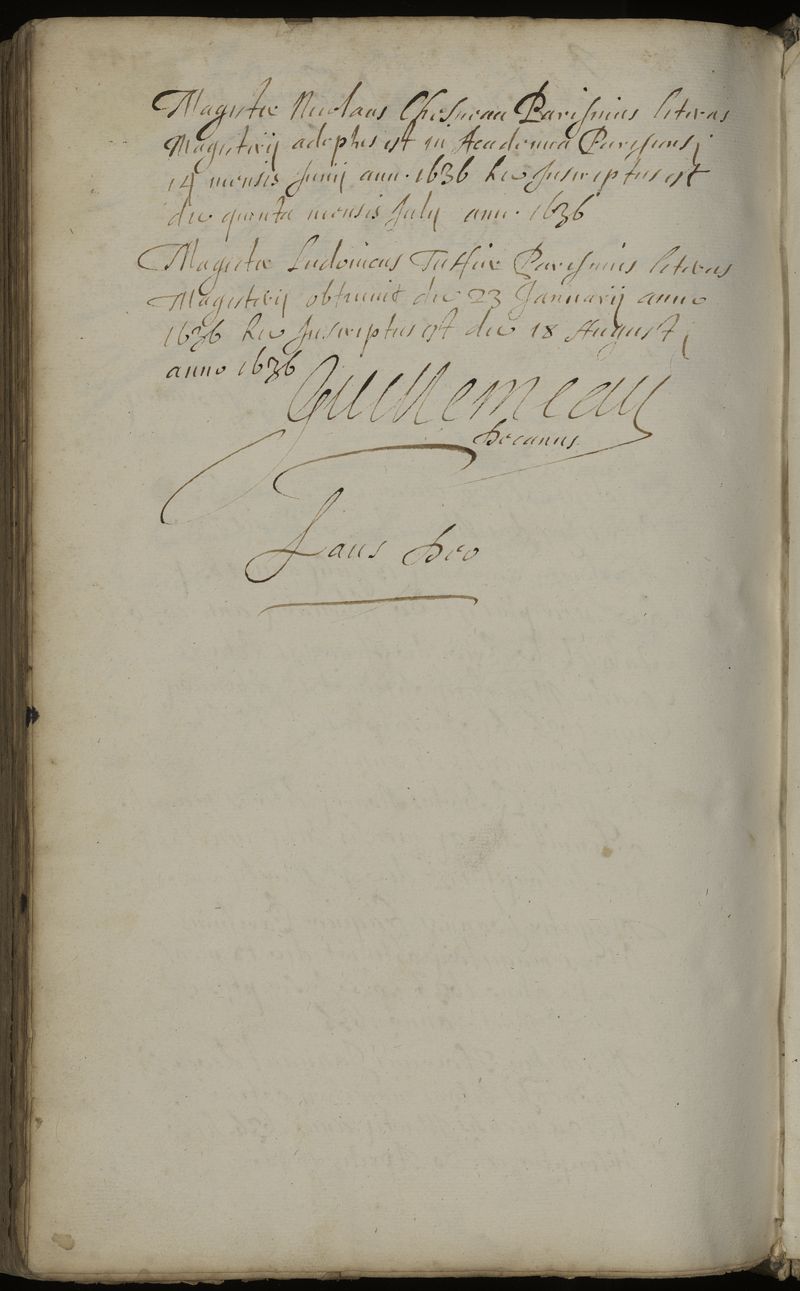 Magister Nicolaus Chesneau Parisinus literas
Magisterij adeptus est in Academia Parisiensj
14 mensis Junij ann. 1636 hic Inscriptus est
die quinta mensis July ann. 1636
Magister Ludovicus Parisinus literas
Magisterij obtinuit die 23 Januarij anno
1636 hic Inscriptus est die 18 Augustj
anno 1636
Guillemeau
Decanus
Laus Deo